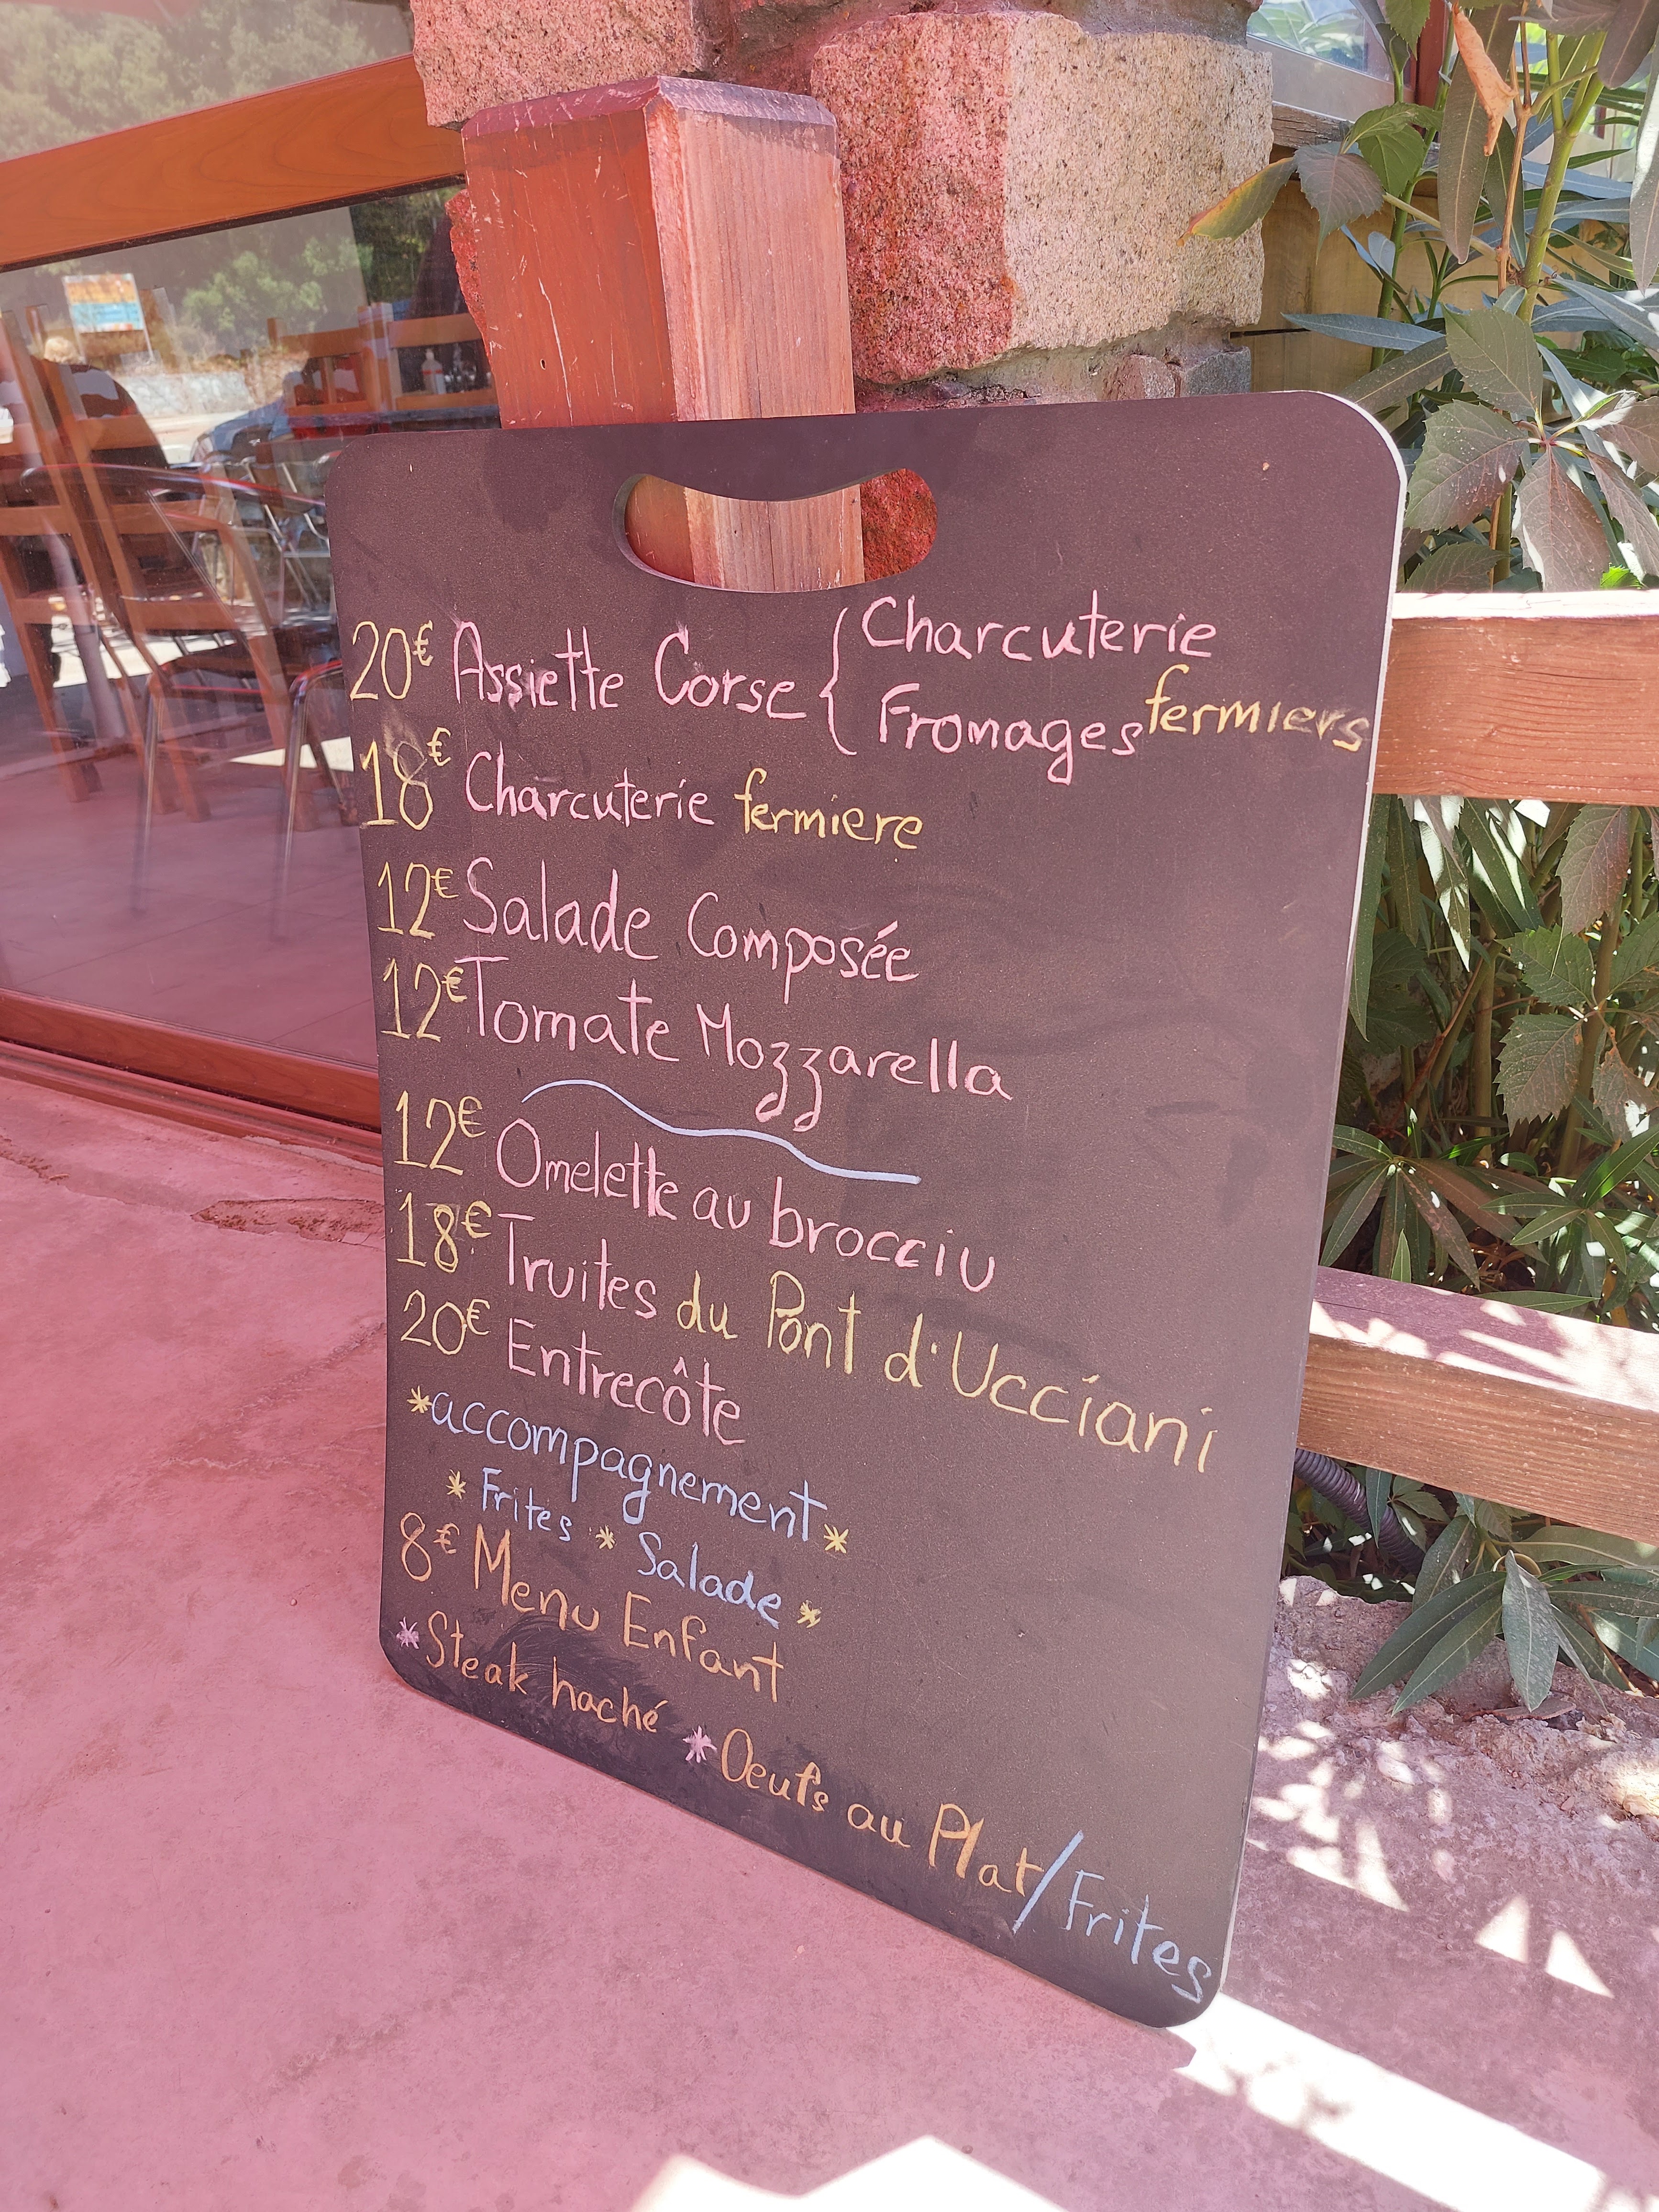 20€ Assiette Corse { Charcuterie
Fromages fermiers
18€ Charcuterie fermiere
12€ Salade Composée
12€ Tomate Mozzarella
12€ Omelette au brocciu
18€ Truites du Pont d'Ucciani
20€ Entrecôte
*accompagnement*
* Frites * Salade *
8€ Menu Enfant
* Steak haché * Oeufs au Plat / Frites